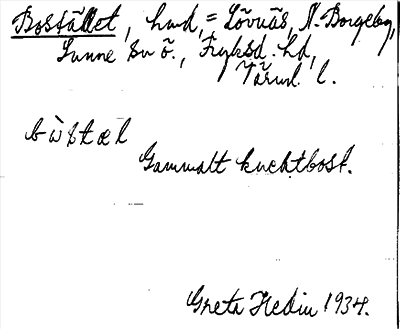 Bostället, hmd, = Lövnäs, N. Borgeby,
Sunne sn ö., Fryksd. hd,
Värml. l.
bùstæl
Gammalt knektbost.
Greta Hedin 1934.